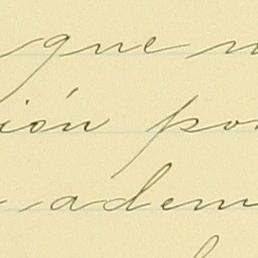 que
ión po
adem